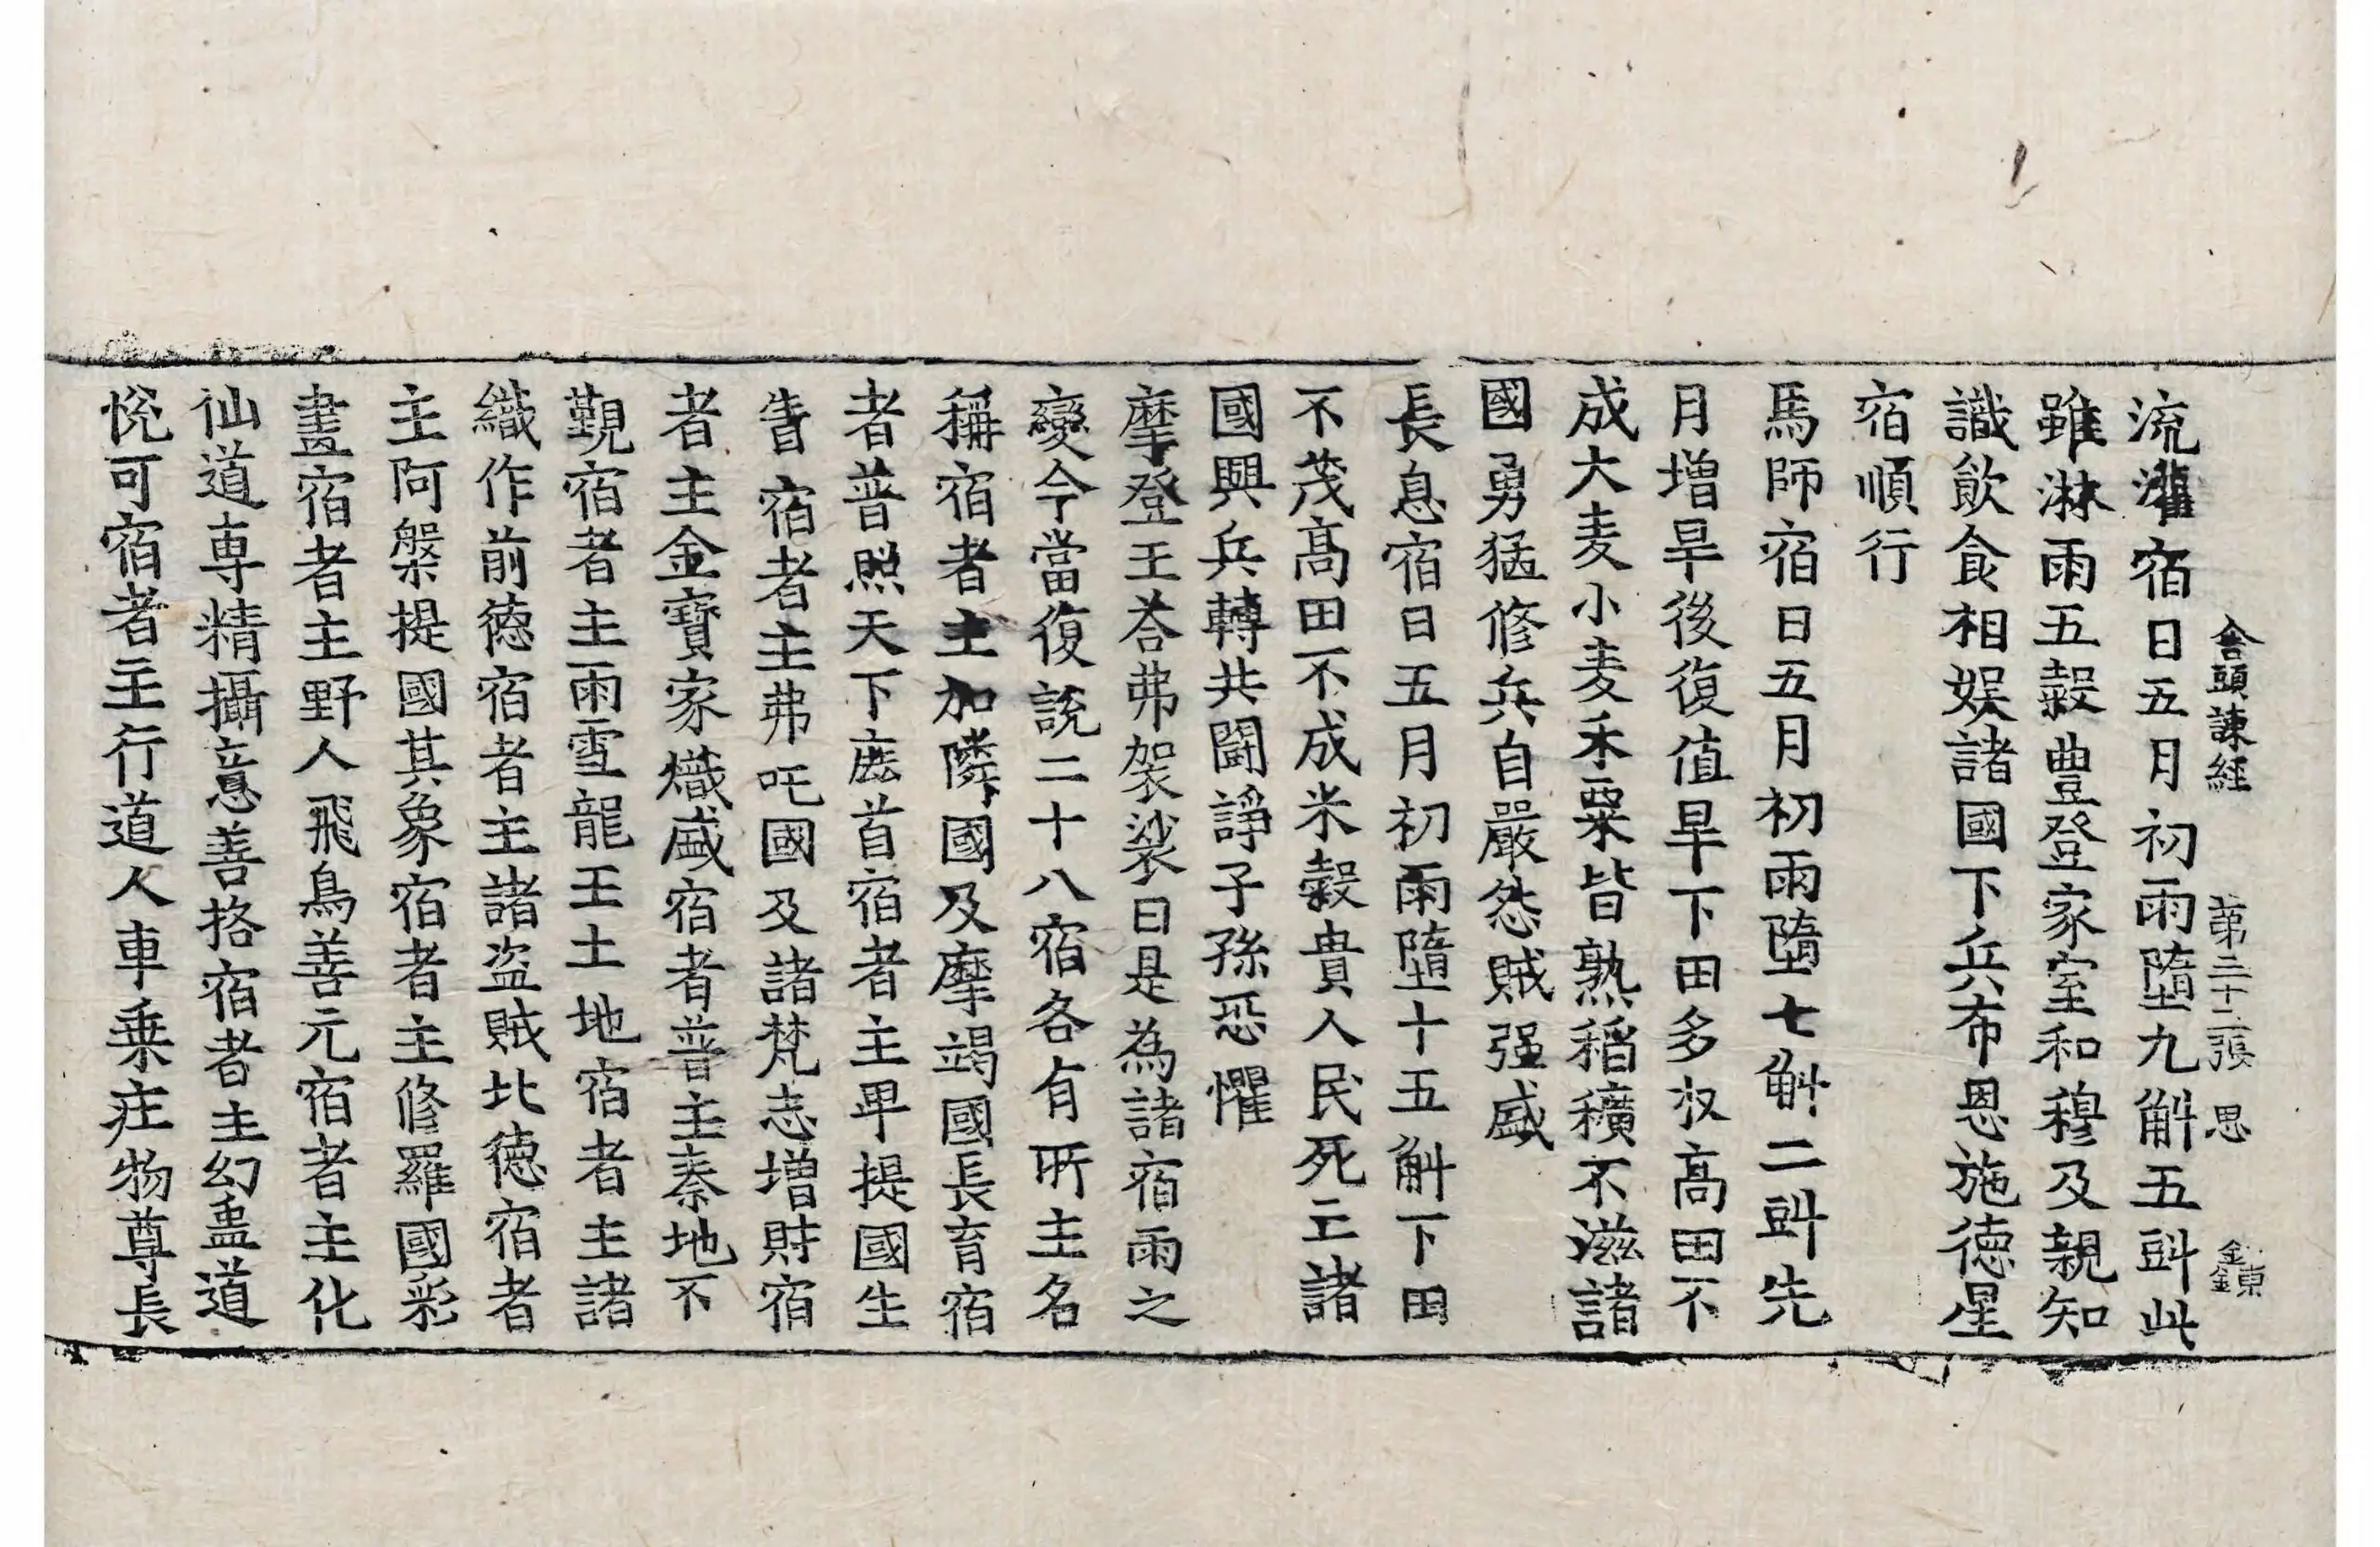 舍頭諫經 第三十二張 思
流灌宿日五月初雨墮九斛五㪷此
雖淋雨五穀豊登家室和穆及親知
識飲食相娱諸國下兵布恩施德星
宿順行
馬師宿日五月初雨墮七斛二㪷先
月增旱後復值旱下田多収高田不
成大麦小麦禾粟皆熟稻穬不滋諸
國勇猛修兵自嚴怨賊强盛
長息宿日五月初雨墮十五斛下田
不茂髙田不成米穀貴人民死亡諸
國興兵轉共鬪諍子孫恐懼
摩登王荅弗袈裟曰是為諸宿雨之
變今當復説二十八宿各有所主名
稱宿者主加隣國及摩竭國長育宿
者普照天下麃首宿者主卑提國生
眚宿者主弗吒國及諸梵志增財宿
者主金寶家熾盛宿者普主秦地不
覲宿者主雨雪龍王土地宿者主諸
織作前德宿者主諸盗賊北德宿者
主阿槃提國其象宿者主修羅國彩
畫宿者主野人飛鳥善元宿者主化
仙道専精攝意善挌宿者主幻蛊道
恱可宿者主行道人車乗疘物尊長